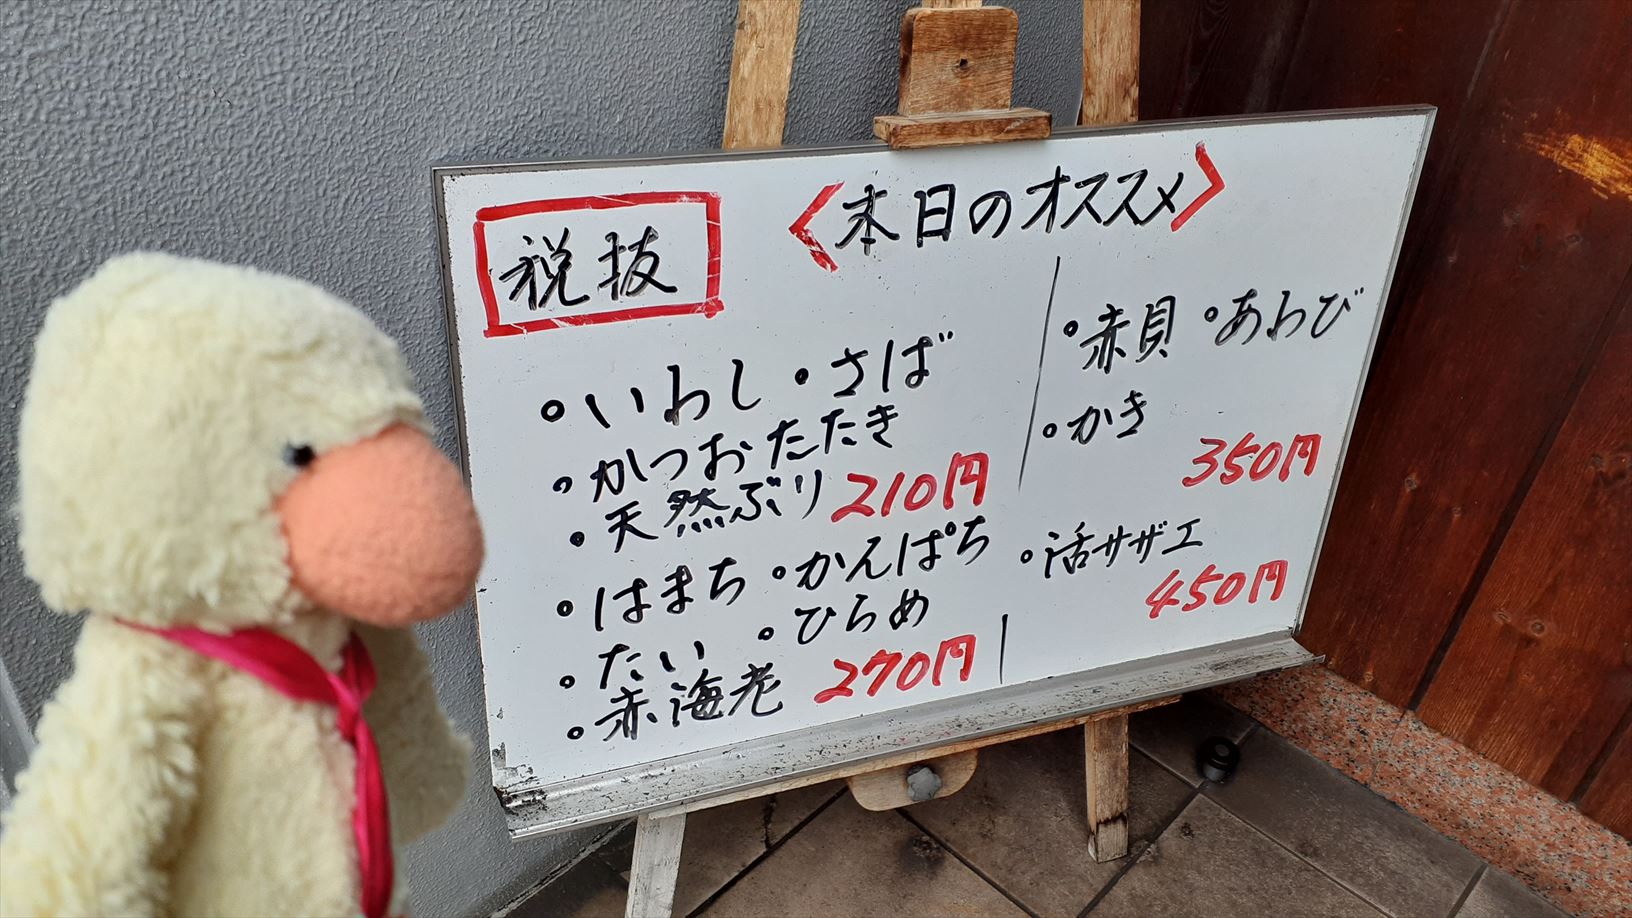 税抜
<本日のオススメ>
・いわし ・さば
・かつおたたき
・天然ぶり 210円
・はまち ・かんぱち
・たい ・ひらめ
・赤海老 270円
・赤貝 ・あわび
・かき
350円
・活サザエ
450円